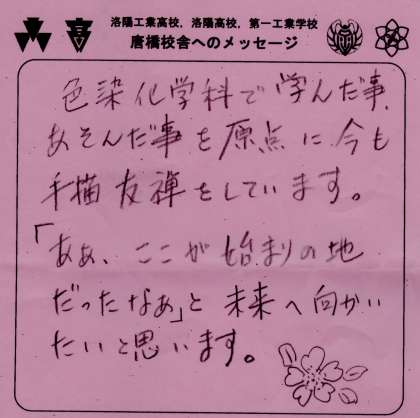 洛陽工業高校，洛陽高校，第一工業学校
唐橋校舎へのメッセージ
色染化学科で学んだ事、
あそんだ事を原点に今も
手描友禅をしています。
「あぁ、ここが始まりの地
だったなぁ」と未来へ向かい
たいと思います。